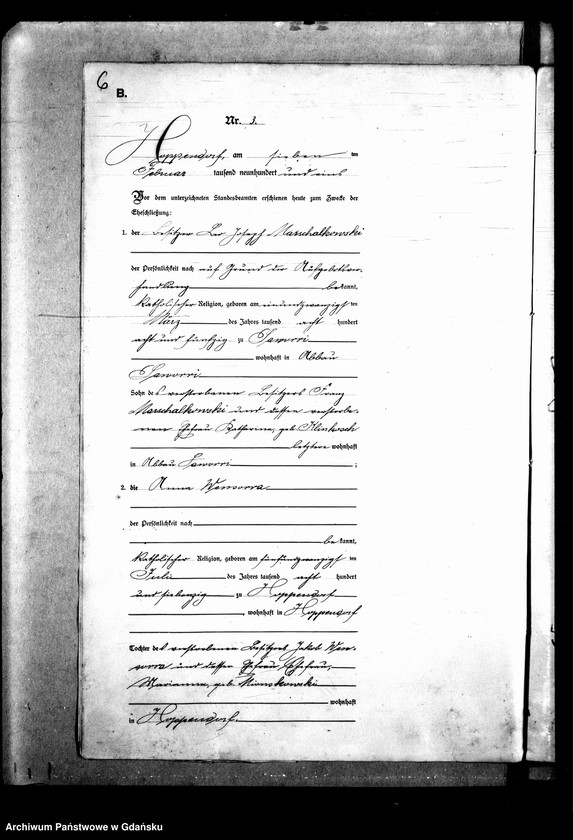 6
B.
Nr. 3.
Hoppendorf, am sieben ten
Februar tausend neunhundert und eins
Vor dem unterzeichneten Standesbeamten erschienen heute zum Zwecke der
Eheschließung:
1. der Besitzer Leo Joseph Marschalkowski
der Persönlichkeit nach auf Grund der Aufgebotsver-
handlung bekannt,
katholischer Religion, geboren am einundzwanzigsten
März des Jahres tausend acht hundert
acht und fünfzig zu Saworri
wohnhaft in Abbau
Saworri
Sohn des verstorbenen Besitzers Franz
Marschalkowski und dessen verstorbe-
nen Ehefrau Katharina, geb. Klinkosch
letztere wohnhaft
in Abbau Saworri ;
2. die Anna Wensorra
der Persönlichkeit nach
bekannt,
katholischer Religion, geboren am fünfundzwanzigsten
Juli des Jahres tausend acht hundert
und siebenzig zu Hoppendorf
, wohnhaft in Hoppendorf
Tochter des verstorbenen Besitzers Jakob Wen-
sorra und dessen Ehefrau, Ehefrau,
Marianna, geb.
wohnhaft
in Hoppendorf.
Archiwum Państwowe w Gdańsku